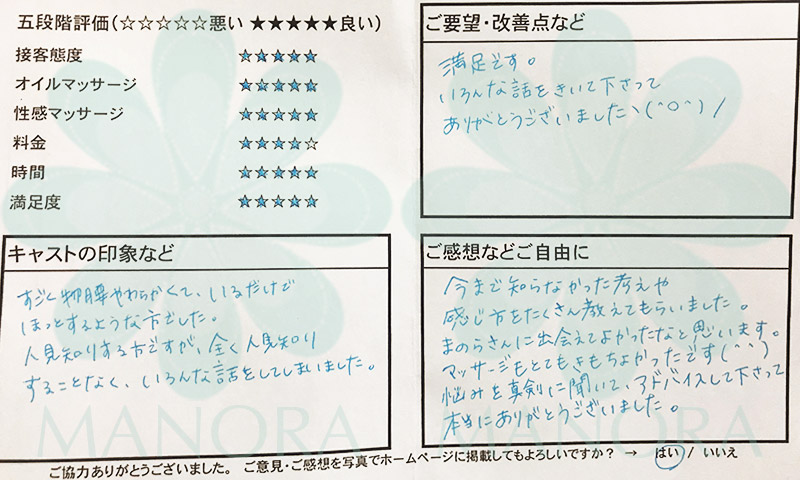 五段階評価(☆☆☆☆☆悪い ★★★★★良い)
接客態度 ★★★★★
オイルマッサージ ★★★★★
性感マッサージ ★★★★★
料金 ★★★★☆
時間 ★★★★★
満足度 ★★★★★
ご要望・改善点など
満足です。
いろんな話をきいて下さって
ありがとうございましたヽ(^O^)/
キャストの印象など
すごく物腰やわらかくて、いるだけで
ほっとするような方でした。
人見知りする方ですが、全く人見知り
することなく、いろんな話をしてしまいました。
ご感想などご自由に
今まで知らなかった考えや
感じ方をたくさん教えてもらいました。
まのらさんに出会えてよかったなと思います。
マッサージもとてもきもちよかったです(^^)
悩みを真剣に聞いて、アドバイスして下さって
本当にありがとうございました。
MANORA MANORA
ご協力ありがとうございました。 ご意見・ご感想を写真でホームページに掲載してもよろしいですか? → はい / いいえ